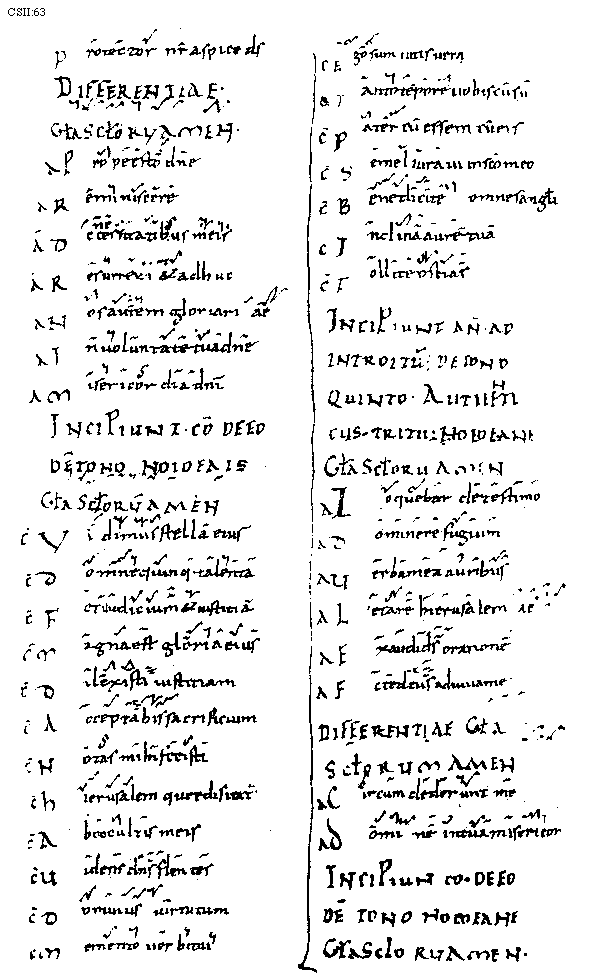 CSII:63
P rotector nr aspice ds
DIFFERENTIAE.
Gła Scłorum AMEN.
A P rope esto dne
A R eminiscere
A D e necessitatibus meis
A R esurrexi & adhuc
A N os autem gloriari ae
A I n voluntate tua dne
A M isericordia dni
INCIPIUNT. CO DE EO
DE TONO NOIOEAIS
Gła Scłorum AMEN
C V idimus stellam eius
C D omine quinq talenta
C F eci iudicium & iustitia
C M agna est gloria eius
C D ilexisti iustitiam
C A cceptabis sacrificium
C N otas mihi fecisti
C h ierusalem que edificat
C A b occultis meis
C U idens dns flentes
C D ominus virtutum
C M emento verbi tui
C E go sum vitis vera
C T anto tempore vobiscum su
C P ater cu essem cu eis
C S emel iuravi in sco meo
C B enedicite omnes angli
C I nclina aure tua
C T ollite ostias
INCIPIUNT AN. AD
INTROITU; DE SONO
QUINTO. AUTHENTI
CUS. TRITUS NOIOEANE
Gła Scłorum AMEN
A L oquebar de testimo
A D omine refugium
A U erba mea auribus
A L etare hierusalem ae
A E xaudi ds oratione
A E cce deus adiuva me
DIFFERENTIAE Gła
Scłorum AMEN
A C ircumdederunt me
A D omine in tua misericor
INCIPIUN CO. DE EO
DE TONO NOIOEANE
Gła Sclo RUAMEN.